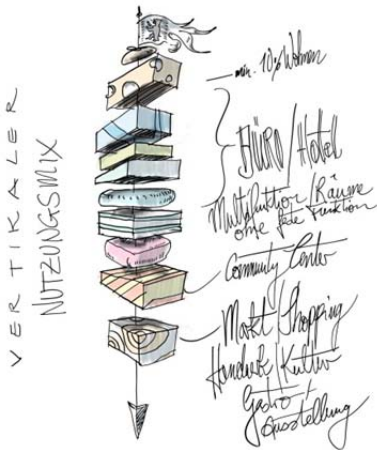 VERTIKALER
NUTZUNGSMIX
min. 10% Wohnen
BÜRO / Hotel
Multifunktion / Räume
ohne feste Funktion
Community Center
Markt / Shopping
Handwerk / Kultur
Gastro +
Ausstellung